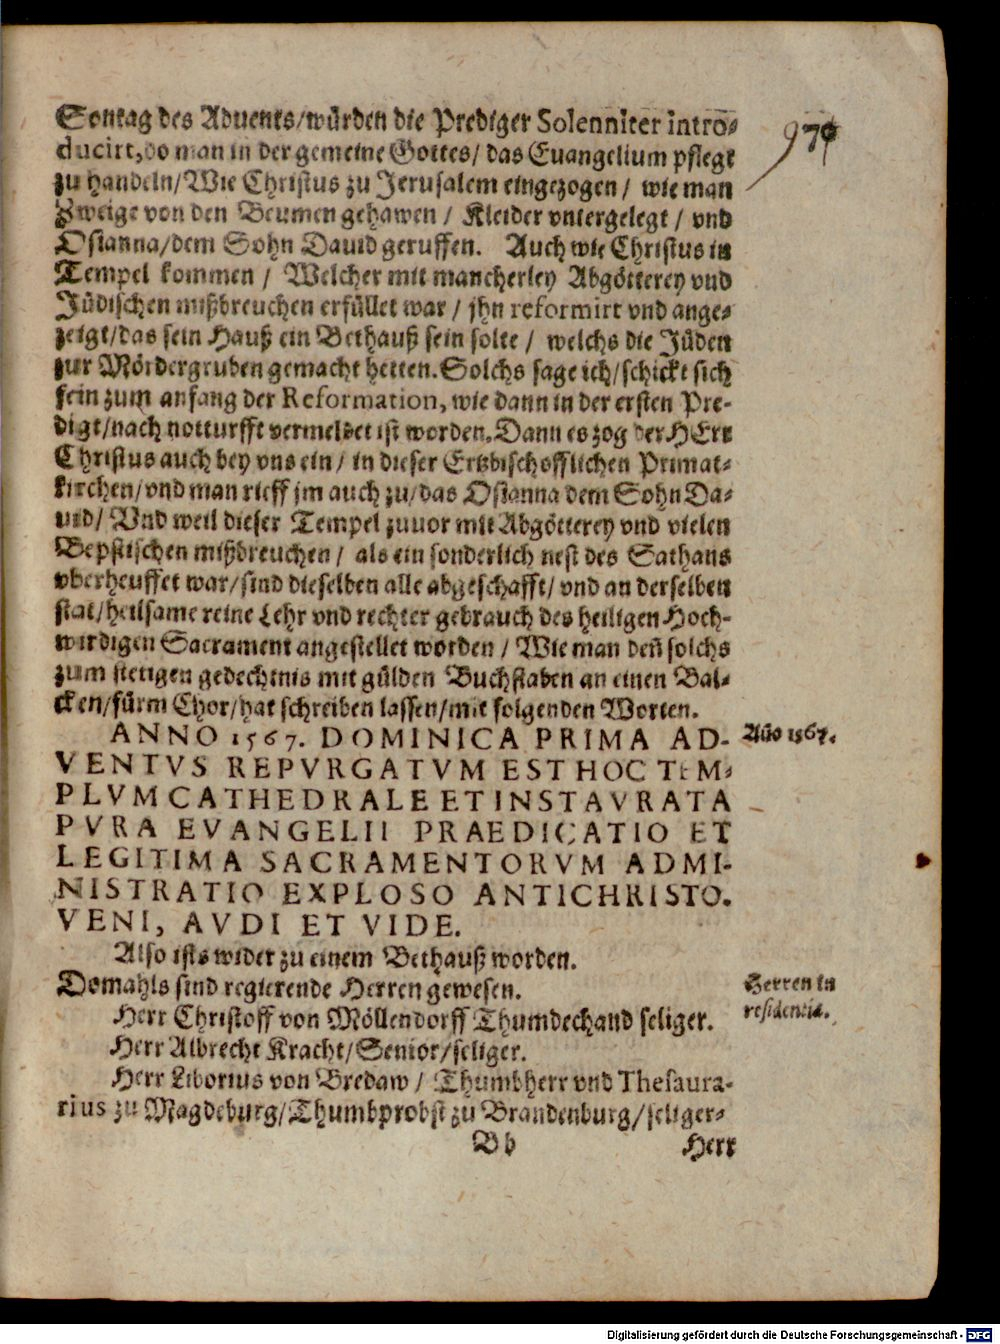 Sontag des Aduents/würden die Prediger Solenniter intro-
ducirt, do man in der gemeine Gottes/ das Euangelium pflegt
zu handeln/Wie Christus zu Jerusalem eingezogen / wie man
Zweige von den Beumen gehawen / Kleider vntergelegt / vnd
Osianna/dem Sohn Dauid geruffen. Auch wie Christus in
Tempel kommen / Welcher mit mancherley Abgötterey vnd
Jüdischen mißbreuchen erfüllet war / jhn reformirt vnd ange-
zeigt/das sein Hauß ein Bethauß sein solte / welchs die Jüden
zur Mördergruben gemacht hetten. Solchs sage ich/schickt sich
fein zum anfang der Reformation, wie dann in der ersten Pre-
digt/nach notturfft vermeldet ist worden. Dann es zog der HErr
Christus auch bey vns ein / in dieser Ertzbischofflichen Primat-
kirchen/vnd man rieff jm auch zu/das Osianna dem Sohn Da-
uid/ Vnd weil dieser Tempel zuuor mit Abgötterey vnd vielen
Bepstischen mißbreuchen / als ein sonderlich nest des Sathans
vberheuffet war/sind dieselben alle abgeschafft/ vnd an derselben
stat/heilsame reine Lehr vnd rechter gebrauch des heiligen Hoch-
wirdigen Sacrament angestellet worden / Wie man deñ solchs
zum stetigen gedechtnis mit gülden Buchstaben an einen Bal-
cken/fürm Chor/hat schreiben lassen/mit folgenden Worten.
ANNO 1567. DOMINICA PRIMA AD-
VENTVS REPVRGATVM EST HOC TEM-
PLVM CATHEDRALE ET INSTAVRATA
PVRA EVANGELII PRAEDICATIO ET
LEGITIMA SACRAMENTORVM ADMI-
NISTRATIO EXPLOSO ANTICHRISTO.
VENI, AVDI ET VIDE.
Also ists wider zu einem Bethauß worden.
Domahls sind regierende Herren gewesen.
Herr Christoff von Möllendorff Thumdechand seliger.
Herr Albrecht Kracht/Senior/seliger.
Herr Liborius von Bredaw / Thumbherr vnd Thesaura-
rius zu Magdeburg/Thumbprobst zu Brandenburg/seliger-
Bb Herr
97
Año 1567.
Herren in
residentia.
Digitalisierung gefördert durch die Deutsche Forschungsgemeinschaft - DFG